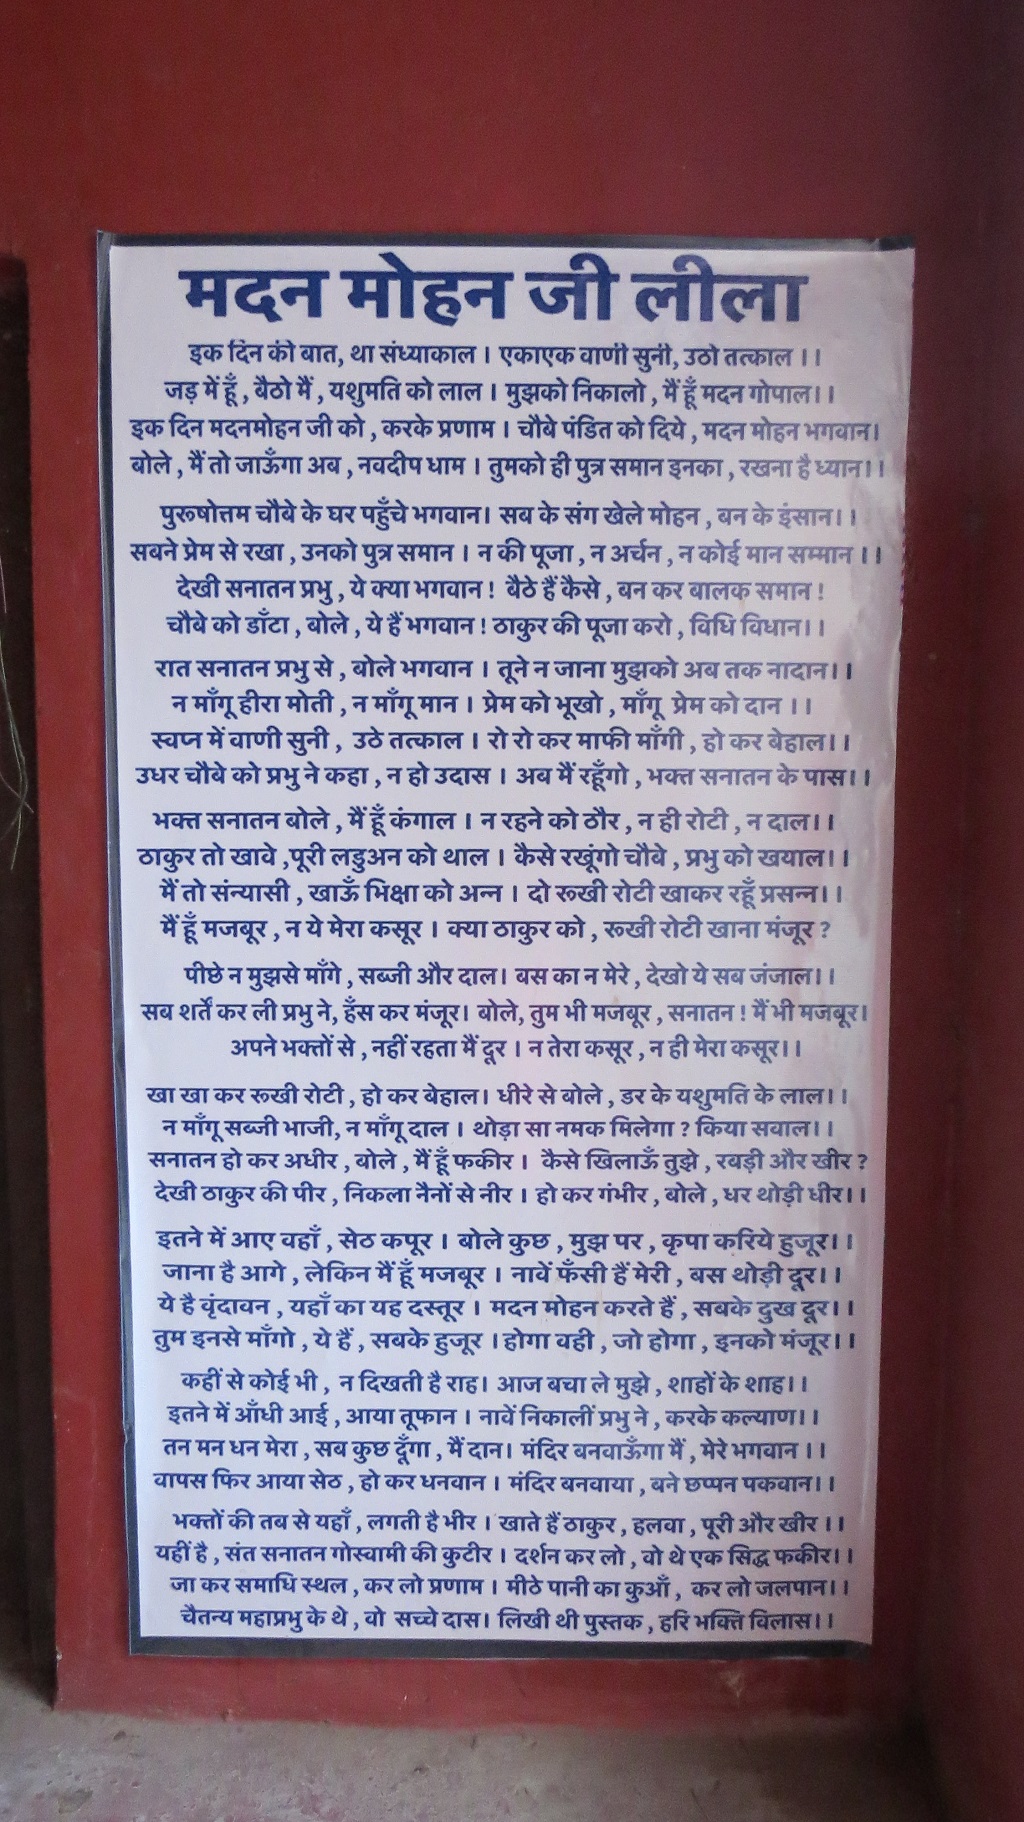 मदन मोहन जी लीला
इक दिन की बात, था संध्याकाल । एकाएक वाणी सुनी, उठो तत्काल ।।
जड़ में हूँ , बैठो मैं , यशुमति को लाल । मुझको निकालो , मैं हूँ मदन गोपाल।।
इक दिन मदनमोहन जी को , करके प्रणाम । चौबे पंडित को दिये , मदन मोहन भगवान।
बोले , मैं तो जाऊँगा अब , नवदीप धाम । तुमको ही पुत्र समान इनका , रखना है ध्यान।।
पुरूषोत्तम चौबे के घर पहुँचे भगवान। सब के संग खेले मोहन , बन के इंसान।।
सबने प्रेम से रखा , उनको पुत्र समान । न की पूजा , न अर्चन , न कोई मान सम्मान ।।
देखी सनातन प्रभु , ये क्या भगवान ! बैठे हैं कैसे , बन कर बालक समान !
चौबे को डाँटा , बोले , ये हैं भगवान ! ठाकुर की पूजा करो , विधि विधान।।
रात सनातन प्रभु से , बोले भगवान । तूने न जाना मुझको अब तक नादान।।
न माँगू हीरा मोती , न माँगू मान । प्रेम को भूखो , माँगू प्रेम को दान ।।
स्वप्न में वाणी सुनी , उठे तत्काल । रो रो कर माफी माँगी , हो कर बेहाल।।
उधर चौबे को प्रभु ने कहा , न हो उदास । अब मैं रहूँगो , भक्त सनातन के पास।।
भक्त सनातन बोले , मैं हूँ कंगाल । न रहने को ठौर , न ही रोटी , न दाल।।
ठाकुर तो खावे ,पूरी लडुअन को थाल । कैसे रखूंगो चौबे , प्रभु को खयाल।।
मैं तो संन्यासी , खाऊँ भिक्षा को अन्न । दो रूखी रोटी खाकर रहूँ प्रसन्न।।
मैं हूँ मजबूर , न ये मेरा कसूर । क्या ठाकुर को , रूखी रोटी खाना मंजूर ?
पीछे न मुझसे माँगे , सब्जी और दाल। बस का न मेरे , देखो ये सब जंजाल।।
सब शर्तें कर ली प्रभु ने, हँस कर मंजूर। बोले, तुम भी मजबूर , सनातन ! मैं भी मजबूर।
अपने भक्तों से , नहीं रहता मैं दूर । न तेरा कसूर , न ही मेरा कसूर।।
खा खा कर रूखी रोटी , हो कर बेहाल। धीरे से बोले , डर के यशुमति के लाल।।
न माँगू सब्जी भाजी, न माँगू दाल । थोड़ा सा नमक मिलेगा ? किया सवाल।।
सनातन हो कर अधीर , बोले , मैं हूँ फकीर । कैसे खिलाऊँ तुझे , रबड़ी और खीर ?
देखी ठाकुर की पीर , निकला नैनों से नीर । हो कर गंभीर , बोले , धर थोड़ी धीर।।
इतने में आए वहाँ , सेठ कपूर । बोले कुछ , मुझ पर , कृपा करिये हुजूर।।
जाना है आगे , लेकिन मैं हूँ मजबूर । नावें फँसी हैं मेरी , बस थोड़ी दूर।।
ये है वृंदावन , यहाँ का यह दस्तूर । मदन मोहन करते हैं , सबके दुख दूर।।
तुम इनसे माँगो , ये हैं , सबके हुजूर ।होगा वही , जो होगा , इनको मंजूर।।
कहीं से कोई भी , न दिखती है राह। आज बचा ले मुझे , शाहों के शाह।।
इतने में आँधी आई , आया तूफान । नावें निकालीं प्रभु ने , करके कल्याण।।
तन मन धन मेरा , सब कुछ दूँगा , मैं दान। मंदिर बनवाऊँगा मैं , मेरे भगवान ।।
वापस फिर आया सेठ , हो कर धनवान । मंदिर बनवाया , बने छप्पन पकवान।।
भक्तों की तब से यहाँ , लगती है भीर । खाते हैं ठाकुर , हलवा , पूरी और खीर ।।
यहीं है , संत सनातन गोस्वामी की कुटीर । दर्शन कर लो , वो थे एक सिद्ध फकीर।।
जा कर समाधि स्थल , कर लो प्रणाम । मीठे पानी का कुआँ , कर लो जलपान।।
चैतन्य महाप्रभु के थे , वो सच्चे दास। लिखी थी पुस्तक , हरि भक्ति विलास।।